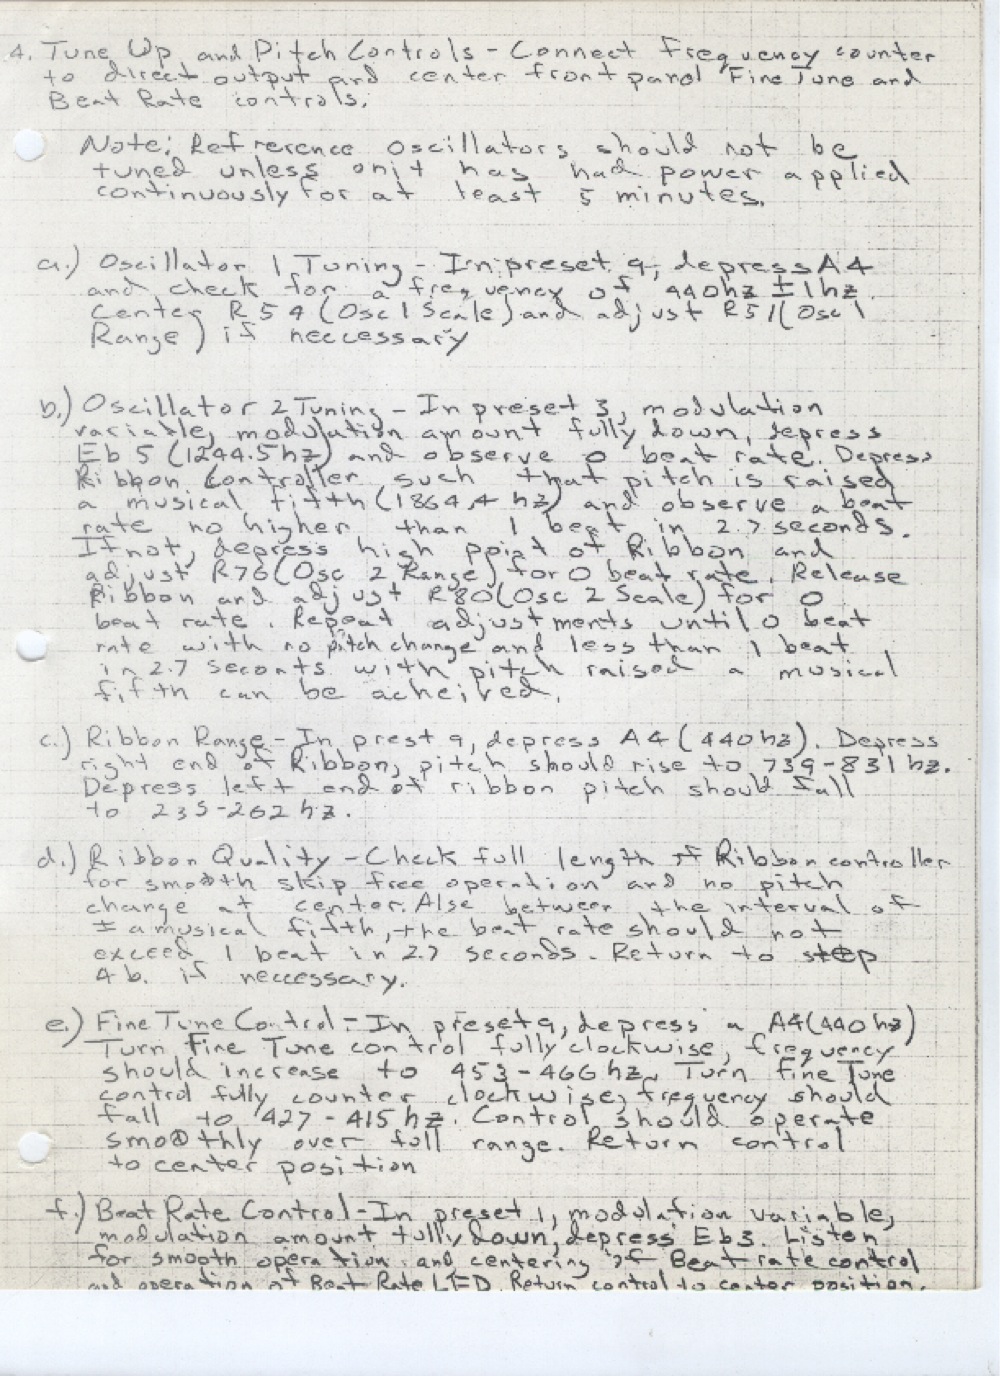 4. Tune Up and Pitch Controls - Connect Frequency counter
to direct output and center front panel Fine Tune and
Beat Rate controls.
Note: Refrerence oscillators should not be
tuned unless unit has had power applied
continuously for at least 5 minutes.
a.) Oscillator 1 Tuning - In preset 9, depress A4
and check for a frequency of 440hz ±1hz.
Center R54 (Osc 1 Scale) and adjust R51 (Osc 1
Range) if neccessary
b.) Oscillator 2 Tuning - In preset 3, modulation
variable, modulation amount fully down, depress
Eb 5 (1244.5hz) and observe 0 beat rate. Depress
Ribbon Controller such that pitch is raised
a musical fifth (1864.4 hz) and observe a beat
rate no higher than 1 beat in 2.7 seconds.
If not, depress high point of Ribbon and
adjust R76 (Osc 2 Range) for 0 beat rate. Release
Ribbon and adjust R80 (Osc 2 Scale) for 0
beat rate. Repeat adjustments until 0 beat
rate with no pitch change and less than 1 beat
in 2.7 seconts with pitch raised a musical
fifth can be acheived.
c.) Ribbon Range - In prest 9, depress A4 (440hz). Depress
right end of Ribbon, pitch should rise to 739-831hz.
Depress left end of ribbon pitch should fall
to 235-262hz.
d.) Ribbon Quality - Check full length of Ribbon controller
for smooth skip free operation and no pitch
change at center. Also between the interval of
± a musical fifth, the beat rate should not
exceed 1 beat in 2.7 seconds. Return to step
4b. if neccessary.
e.) Fine Tune Control - In preset 9, depress a A4 (440hz)
Turn Fine Tune control fully clockwise, frequency
should increase to 453-466hz. Turn Fine Tune
control fully counter clockwise, frequency should
fall to 427-415hz. Control should operate
smoothly over full range. Return control
to center position
f.) Beat Rate Control - In preset 1, modulation variable,
modulation amount fully down, depress Eb3. Listen
for smooth operation and centering of Beat rate control
and operation of Beat Rate LED. Return control to center position.